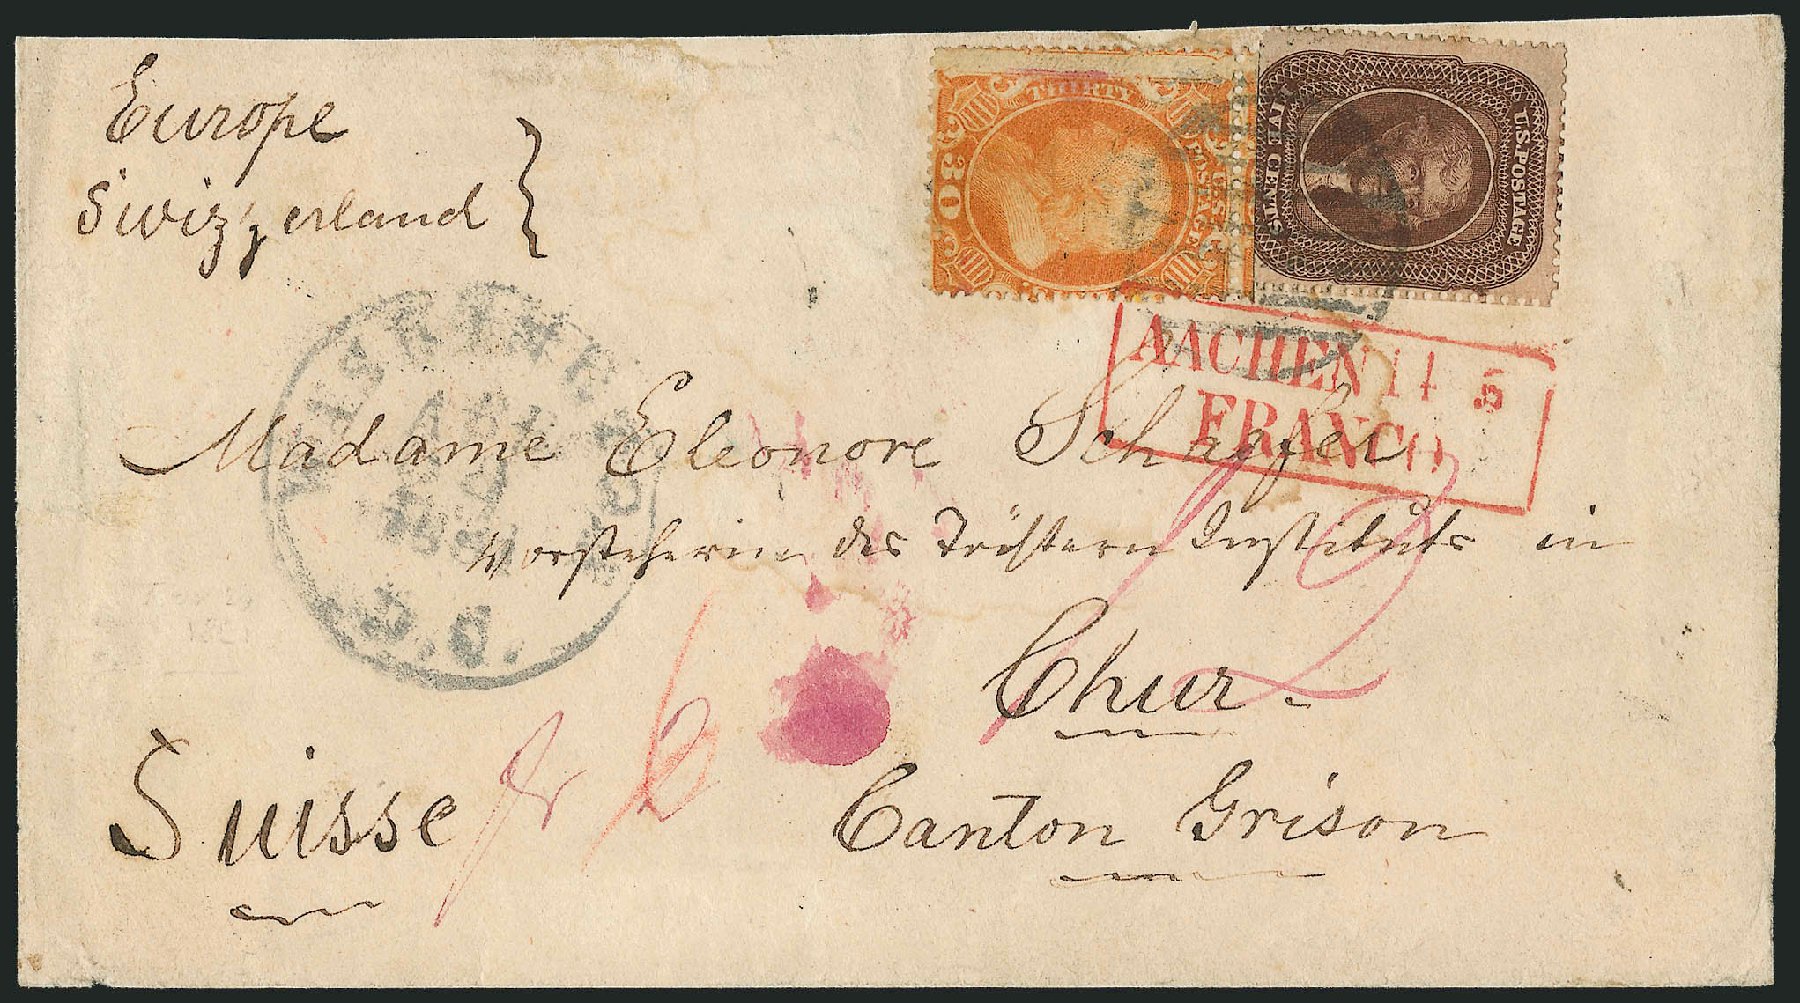 Europe
Switzerland
THIRTY
30
U.S. POSTAGE
U.S. POSTAGE
FIVE CENTS
AACHEN 14 5
FRANCO
WASHINGTON
D.C.
Madame Eleonore Schäffer
Vorsteherin des Töchtern Instituts in
Chur
Canton Grison
Suisse
fr 6